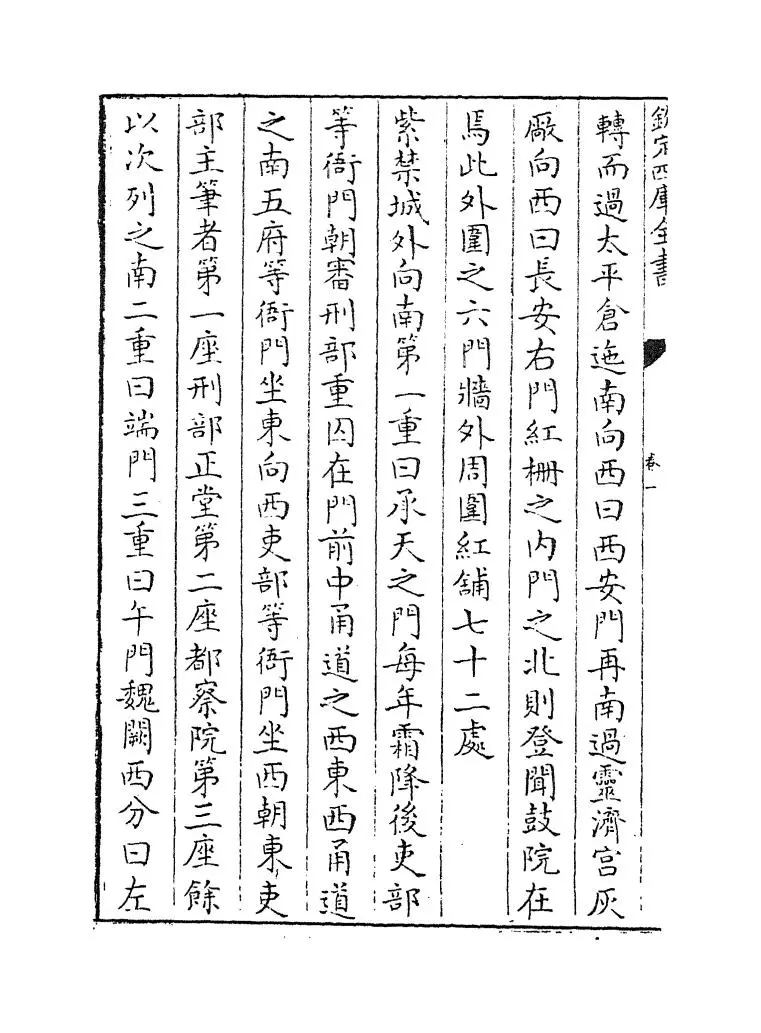 欽定四庫全書
卷一
轉而過太平倉迤南向西曰西安門再南過靈濟宮灰
厰向西曰長安右門紅柵之内門之北則登聞鼓院在
焉此外圍之六門牆外周圍紅舖七十二處
紫禁城外向南第一重曰承天之門每年霜降後吏部
等衙門朝審刑部重囚在門前中甬道之西東西甬道
之南五府等衙門坐東向西吏部等衙門坐西朝東吏
部主筆者第一座刑部正堂第二座都察院第三座餘
以次列之南二重曰端門三重曰午門魏闕西分曰左